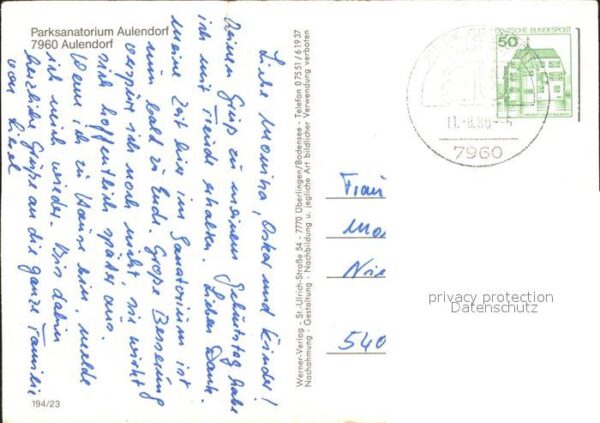 Parksanatorium Aulendorf
7960 Aulendorf
Liebe Monika, Oskar und Kinder!
Deinen Gruß zu meinem Geburtstag habe
ich mit Freude erhalten. Lieben Dank.
Meine Zeit hier im Sanatorium ist
nun bald zu Ende. Große Besserung
verspüre ich noch nicht, sie wirkt
sich hoffentlich später aus.
Wenn ich zu Hause bin, melde
ich mich wieder. Bis dahin
herzliche Grüße an die ganze Familie
von Liesel
194/23
Werner-Verlag - St.-Ulrich-Straße 54 - 7770 Überlingen/Bodensee - Telefon 07551/61937
Nachahmung - Gestaltung - Nachbildung u. jegliche Art bildlicher Verwendung verboten
DEUTSCHE BUNDESPOST
50
11.-8.80--5
7960
Frau
Mo
Nie
540
privacy protection
Datenschutz